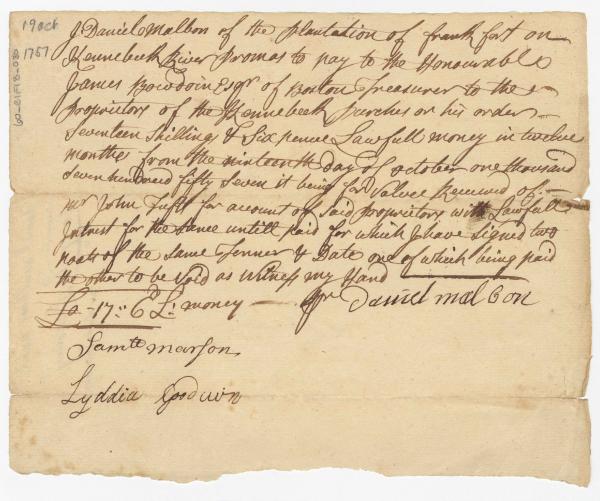 19 oct
1757
I Daniel Malbon of the plantation of frank fort on
Kennebeck River Promas to pay to the Honourable
James Bowdoin Esqr of Boston Treasurer to the
Propriotors of the Kennebeck Purches or his order
Seventeen Shillings & Six pence Lawfull money in twelve
months from the ninteenth day of october one thousand
Seven hundred fifty Seven it being for valvee Received of
mr John Tufts for account of Said Propriotors with Lawfull
Intrest for the same untill paid for which I have signed two
noats of the same Tenner & Date one of which being paid
the other to be Void as witness my Hand
£0-17:6 L: money
Daniel malbon
Samll marson
Lyddia Goodwin